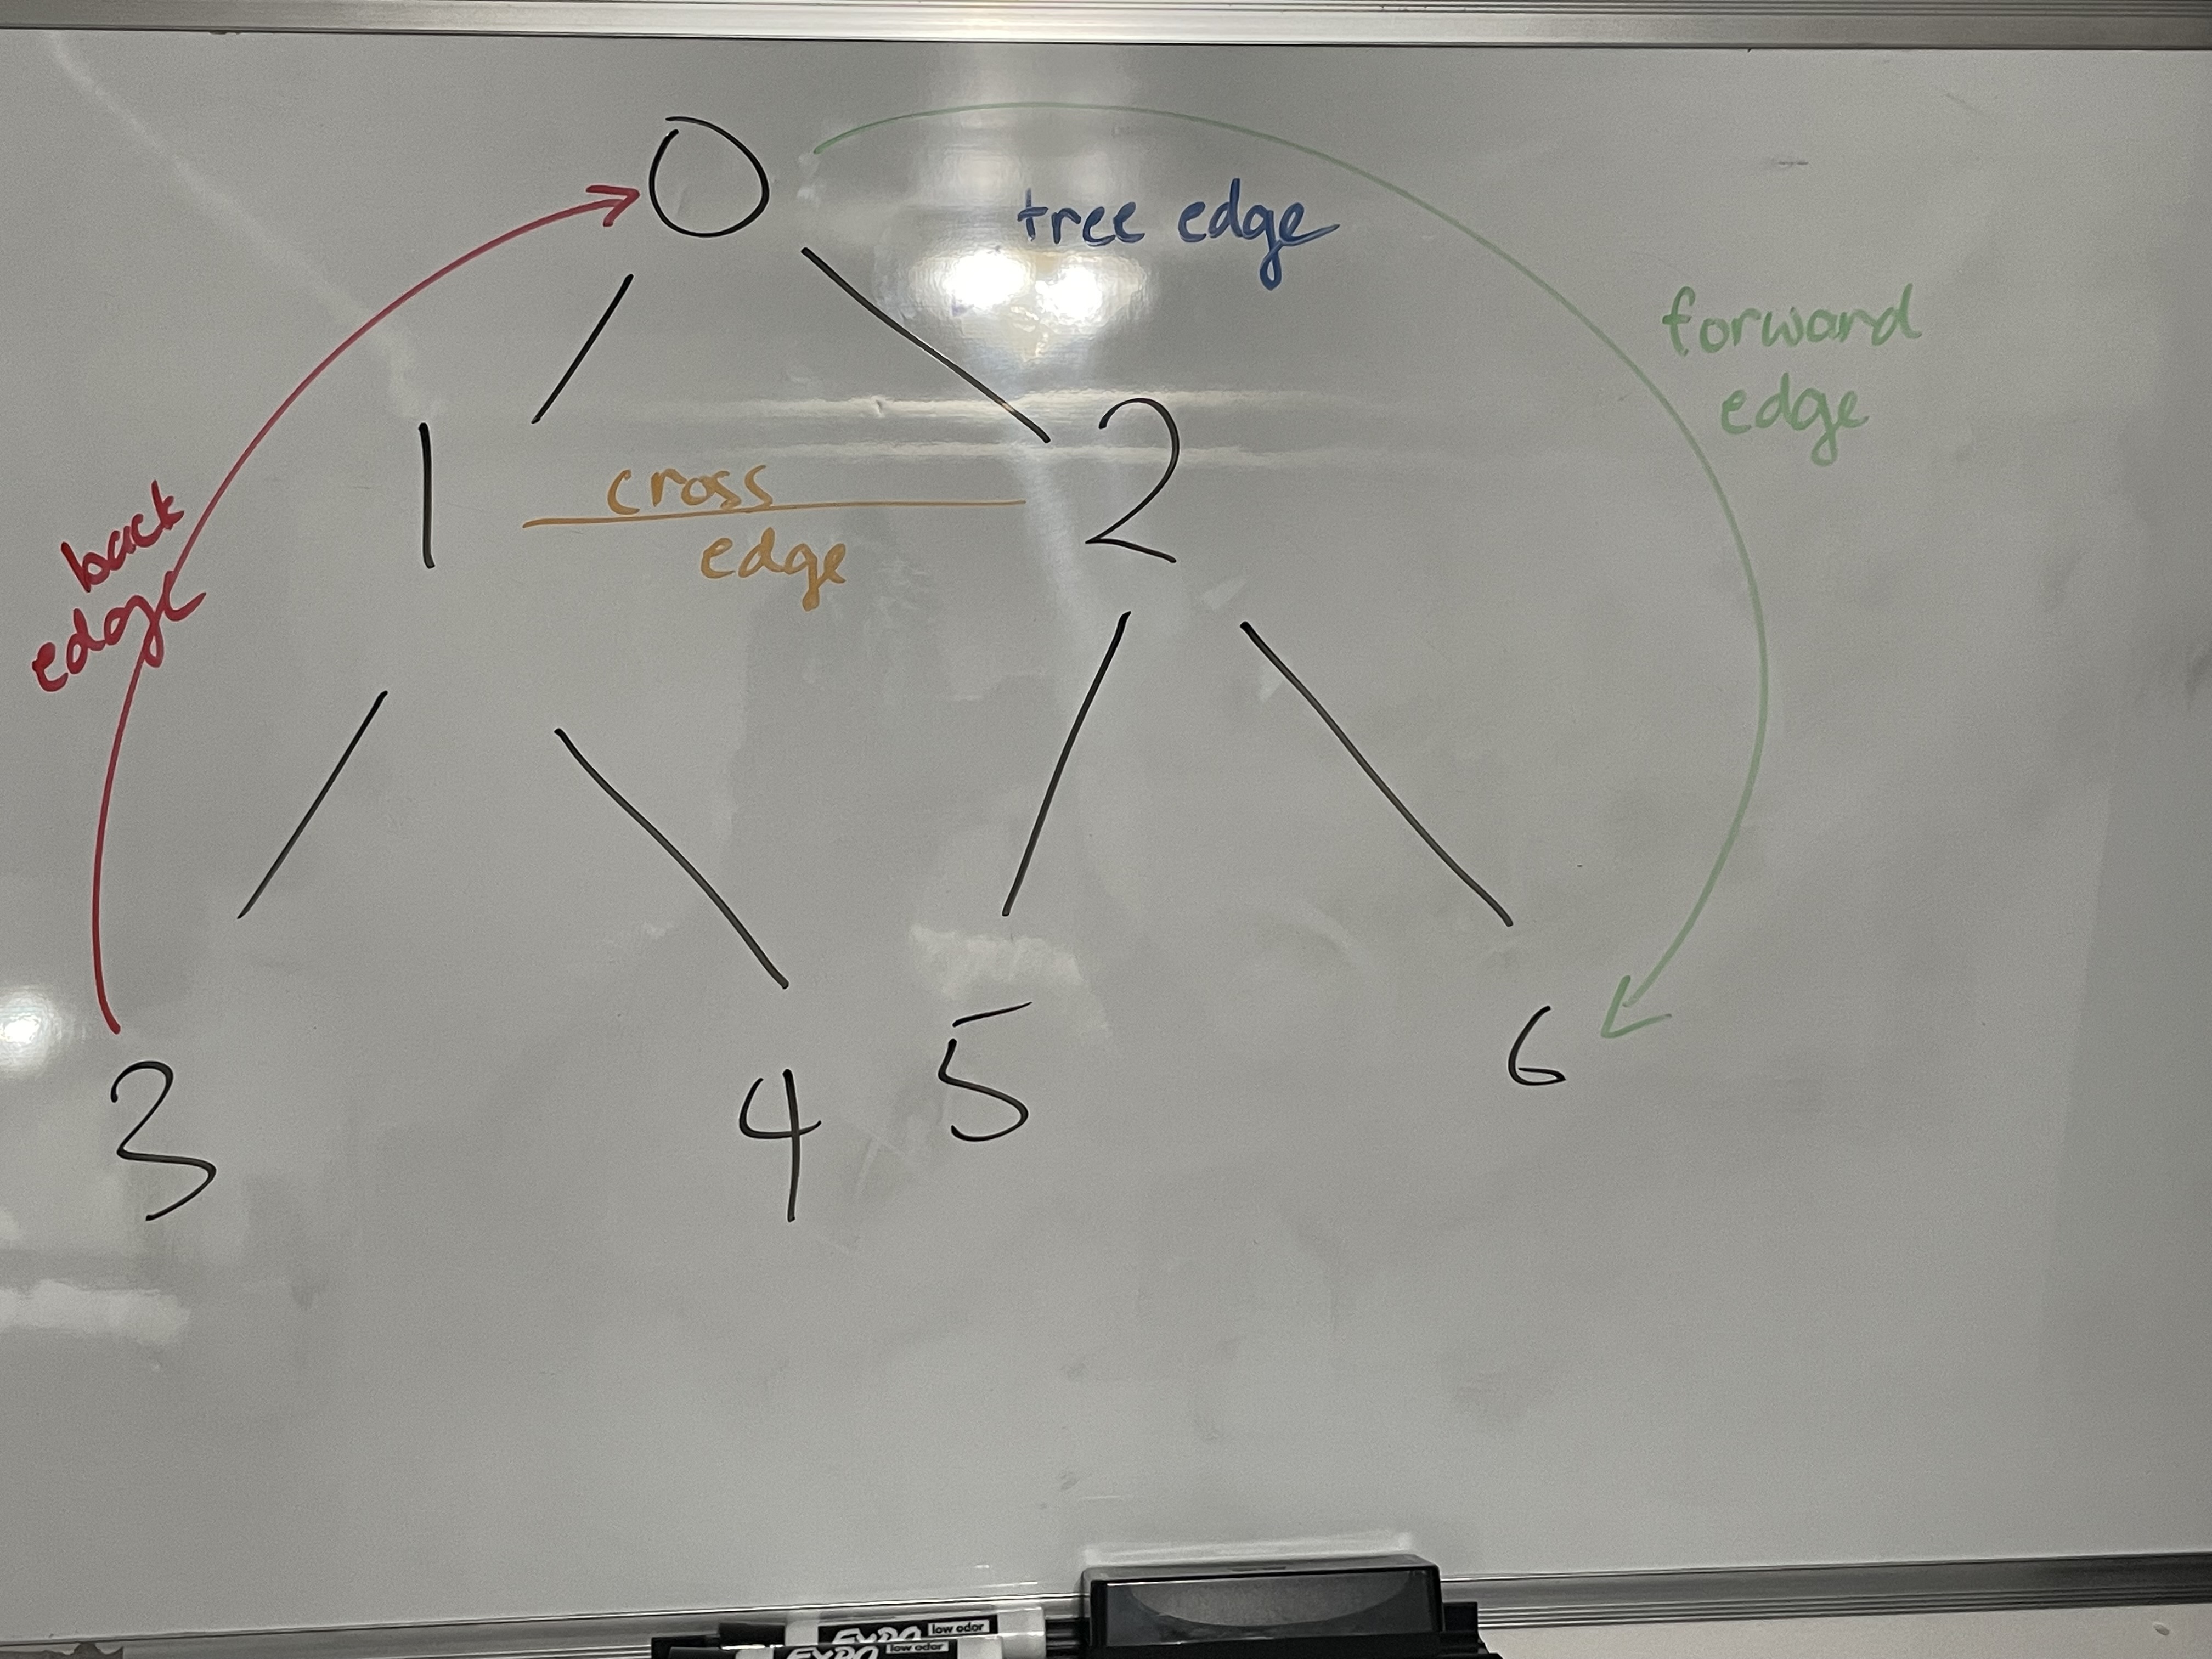 0
tree edge
forward
edge
1
cross
edge
2
back
edge
3
4
5
6
EXPO low odor
EXPO low odor